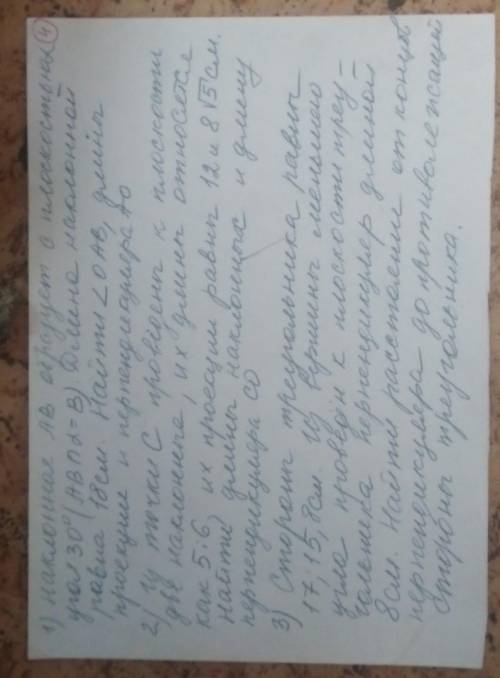 4
1) наклонная АВ образует с плоскостью
угол 30° (АВ∩α=В). Длина наклонной
равна 18см. Найти ∠ОАВ, длины
проекции и перпендикуляра АО
2) Из точки С проведены к плоскости
две наклонные, их длины относятся
как 5:6, их проекции равны 12 и 8√5 см.
Найти длины наклонных и длину
перпендикуляра СО
3) Стороны треугольника равны
17, 15, 8см. Из вершины меньшего
угла проведён к плоскости треу-
гольника перпендикуляр длиной
8см. Найти расстояние от концов
перпендикуляра до противолежащей
стороны треугольника.